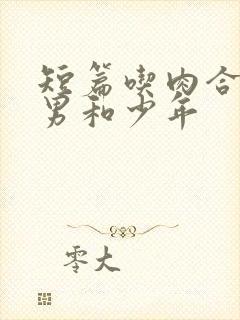 短篇喫肉合
男和少年
零大